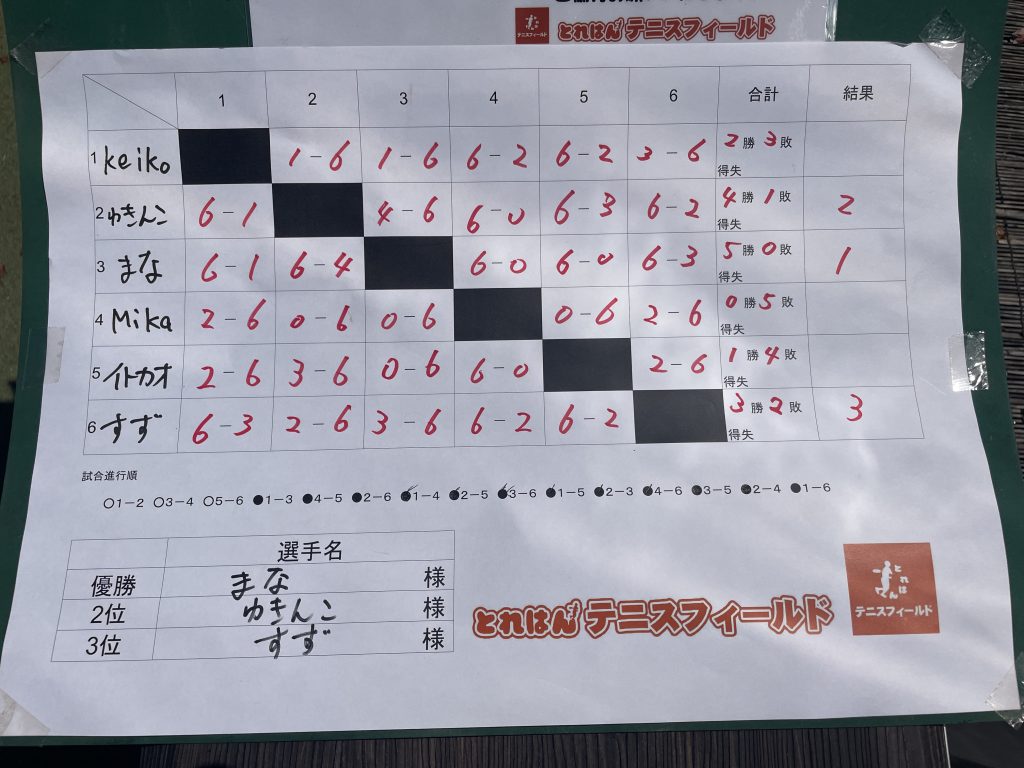 とれはん テニスフィールド
1 2 3 4 5 6 合計 結果
1 keiko 1-6 1-6 6-2 6-2 3-6 2勝3敗
得失
2 ゆきんこ 6-1 4-6 6-0 6-3 6-2 4勝1敗 2
得失
3 まな 6-1 6-4 6-0 6-0 6-3 5勝0敗 1
得失
4 Mika 2-6 0-6 0-6 0-6 2-6 0勝5敗
得失
5 イトカオ 2-6 3-6 0-6 6-0 2-6 1勝4敗
得失
6 すず 6-3 2-6 3-6 6-2 6-2 3勝2敗 3
得失
試合進行順
○1-2 ○3-4 ○5-6 ●1-3 ●4-5 ●2-6 ●1-4 ●2-5 ●3-6 ●1-5 ●2-3 ●4-6 ●3-5 ●2-4 ●1-6
選手名
優勝 まな 様
2位 ゆきんこ 様
3位 すず 様
とれはん テニスフィールド
とれはん
テニスフィールド